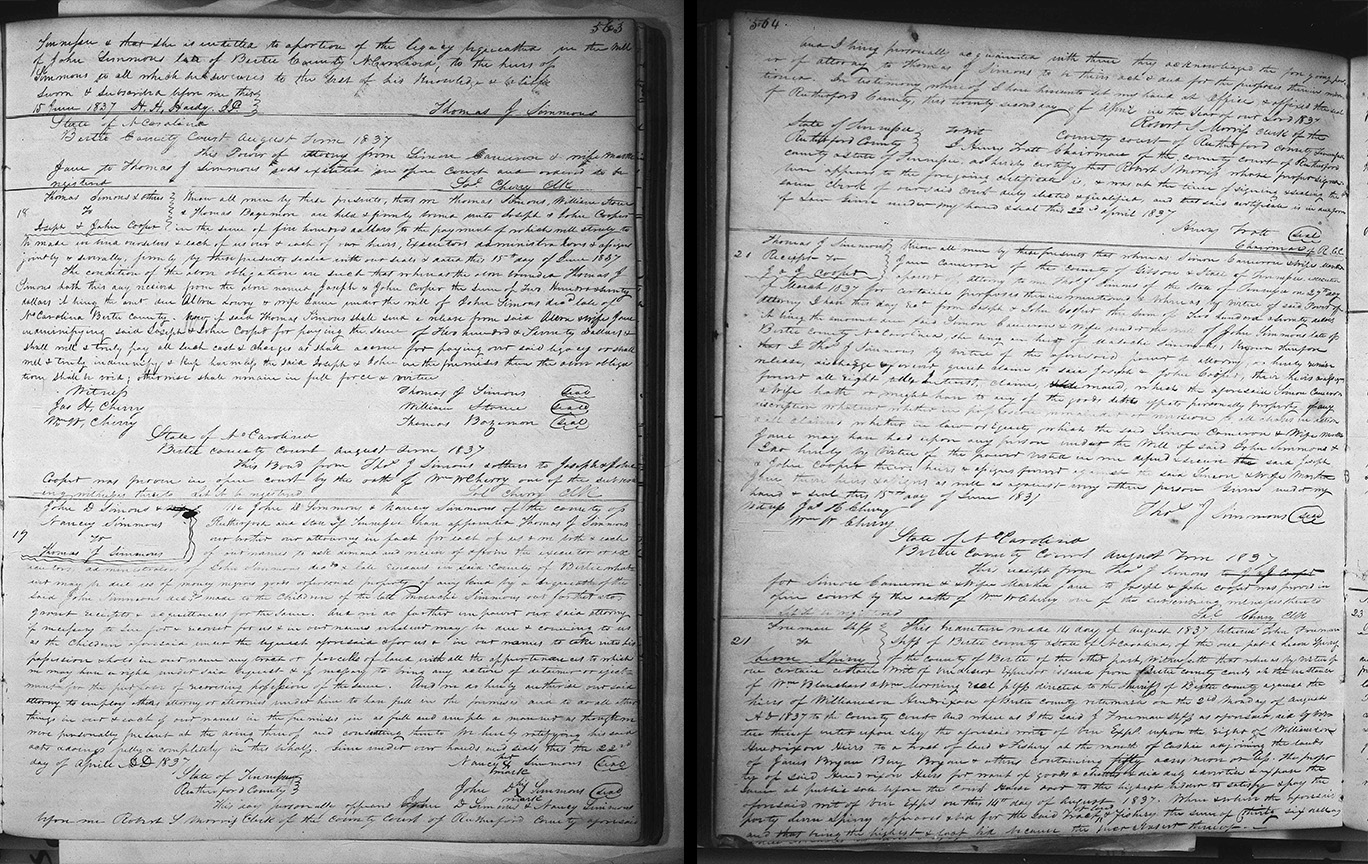 563
Tennessee & that she is entitled to a portion of the legacy bequeathed in the will
of John Simmons late of Bertie County N Carolina to the heirs of
Simmons is all which he swears to the best of his knowledge & belief
Sworn & Subscribed upon me this
15 June 1837 H. H. Hardy, J.P. Thomas J Simmons
State of N Carolina
Bertie County Court August Term 1837
This Power of attorny from Simon Cameron & wife Martha
Jane to Thomas J Simmons was exhibited in open Court and ordered to be
registered Sol. Cherry Clk
Thomas Simons & others Know all men by these presents, that we Thomas Simons, William Stone
18 To & Thomas Bazemon are held & firmly bound unto Joseph & John Cooper
Joseph & John Cooper in the sum of five hundred dollars to the payment of which will & truly to
be made we bind ourselves & each of us our & each of our heirs, Executors administrators & assigns
jointly & severally, firmly by these presents sealed with our seals & dated this 15th day of June 1837
The condition of the above obligation are such that whereas the above bounden Thomas J
Simons hath this day received from the above named Joseph & John Cooper the sum of Two Hundred & seventy
dollars it being the amt due Alton Lowry & wife Jane under the will of John Simons decd late of
N Carolina Bertie County. Now if said Thomas Simons shall send a release from said Alton & wife Jane
indemnifying said Joseph & John Cooper for paying the sum of Two hundred & Seventy Dollars &
shall well & truly pay all such cost & charges as shall accrue for paying out said legacy or shall
well & truly indemnify & keep harmless the said Joseph & John in the premises then the above obliga
tion, shall be void; otherwise shall remain in full force & virtue
Witness Thomas J Simons (seal)
Jas H Cherry William Stone (seal)
Wm W Cherry Thomas Bazemon (seal)
State of N Carolina
Bertie county Court August Term 1837
This Bond from Thos J Simons & others to Joseph & John
Cooper was proven in open court by the oath of Wm W Cherry one of the subscri
bing witnesses thereto let it be registered Sol Cherry Clk
John D Simons &
Nancy Simmons We John D Simmons & Nancy Simmons of the county of
19 To Rutherford and State of Tennessee have appointed Thomas J Simmons
Thomas J Simmons our brother our attorney in fact for each of us & in both & each
of our names to ask demand and receive of aforesd the executor or ex
ecutors or administrators of John Simmons decd & late Esquire in said County of Bertie what
ever may be due us of money negros goods or personal property of any kind by a bequeath of the
said John Simmons decd made to the Children of the late Malachi Simmons our father also
grant receipts & aquittances for the same. And we do further impower our said attorney
if necessary to sue for & recover for us & in our names whatever may be due & coming to us
as the Children aforesaid under the bequest aforesaid & for us & in our names to take into his
possession & hold in our name any tract or parcells of land with all the appurtenances to which
we may have a right under said bequest & if necessary to bring any action of detinue or eject
ment for the purpose of recovering possession of the same. And we do hereby authorise our said
attorney to employ other attorny or attornies under him to have full in the premises and to do all other
things in our & each of our names in the premises in as full and ample a manner as though we
were personally present at the doing thereof and consenting thereto hereby ratifying his said
acts & doings fully & completely in this behalf. Given under our hands and seals this the 22nd
day of Aprile AD 1837 Nancy her mark Simmons (seal)
State of Tennessee
Rutherford County John D his mark Simmons (seal)
This day personally appeared John D Simmons & Nancy Simmons
before me Robert S Morris Clerk of the County Court of Rutherford County aforesaid
564.
and I being personally acquainted with them they acknowledged the foregoing pow
er of attorney to Thomas J Simons to be their act & deed for the purposes therein men
tioned. In testimony whereof I have hereunto set my hand at Office & affixed the seal
of Rutherford County, this twenty second day of April in the year of our Lord 1837
Robert S Morris Clerk of the
State of Tennessee county court of Rutherford county Tennessee
Rutherford County towit I. Henry Trott Chairman of the county court of Rutherford
county & State of Tennessee, do hereby certify that Robert S Morris whose proper signa
ture appears to the foregoing certificate is, & was at the time of signing & sealing the
same Clerk of our said court duly elected & qualified, and that said certificate is in due form
of Law Given under my hand & seal this 22d april 1837
Henry Trott (seal)
Chairman of R. C.C.
Thomas J Simmons Know all men by these presents that whereas Simon Cameron & Wife Martha
21 Receipt To Jane Cameron of the County of Gibson & State of Tennessee executed
J & J Cooper a power of attorny to me Thos J Simons of the State of Tennessee on 27th day
of March 1837 for certain purposes therein mentioned & whereas by virtue of said Power of
attorny I have this day recd from Joseph & John Cooper the sum of Two hundred & seventy dollars
it being the amount due said Simon Cameron & Wife under the will of John Simmons late of
Bertie county N Carolina, she being an heir of Malachi Simmons, Know therefore
that I Thos J Simmons by virtue of the aforesaid power of attorny do hereby remise
release, discharge & forever quit claim to said Joseph & John Cooper, their heirs & assigns
forever all right title, interest, claim, demand, which the aforesaid Simon Cameron
& Wife hath or might have to any of the goods debts effects personally property of any
discription whatever whether in possession remainder or reversion & all choses in action
& all claims whether in law or Equity which the said Simon Cameron & Wife Martha
Jane may have had upon any person under the Will of said John Simmons &
I do hereby by virtue of the power vested in me defend & secure the said Joseph
& John Cooper their heirs & assigns forever against the said Simon & Wife Martha
Jane their heirs & assigns as well as against every other person Given under my
hand & seal this 15th day of June 1837
Witness Jas H Cherry Thos J Simmons (seal)
Wm W Cherry
State of N Carolina
Bertie County Court August Term 1837
This receipt from Thos J Simons to J & J Cooper
for Simon Cameron & Wife Martha Jane to Joseph & John Cooper was proved in
open court by the oath of Wm W Cherry one of the subscribing witnesses thereto
let it be registered Sol Cherry Clk
Freeman Shff This Indenture made 14 day of August 1837 between John Freeman
21 To Shff of Bertie county & State of N Carolina, of the one part & Aaron Spivey
Aaron Spivey of the county of Bertie of the other part, Witnesseth that whereas by virtue of
a certain writ of venditioni exponas issued from Bertie county court at the instance
of Wm Blanchard & Wm Morning Real pltff directed to the Sheriff of Bertie county against the
heirs of Williamson Hendrixon of Bertie county returnable on the 2nd Monday of August
AD 1837 to the County Court And where as I the said J Freeman Shff as aforesaid did by vir
tue thereof enter upon sky the aforesaid writ of Ven Expo upon the right of Williamson
Hendrixon Heirs to a tract of land & Fishery at the mouth of Cashie adjoining the lands
of James Bryan Benj Bryan & others containing fifty acres more or less. The proper
ty of said Hendrixon Heirs for want of goods & chattles & did duly advertise & expose the
same at public sale before the Court House door to the highest bidder to satisfy & pay the
aforesaid writ of Ven Expo on this 14th day of August 1837. When & where the aforesaid
party Aaron Spivey appeared & bid for the said tract of land & fishery the sum of thirty six dollars
and that being the highest & last bid became the purchaser thereof